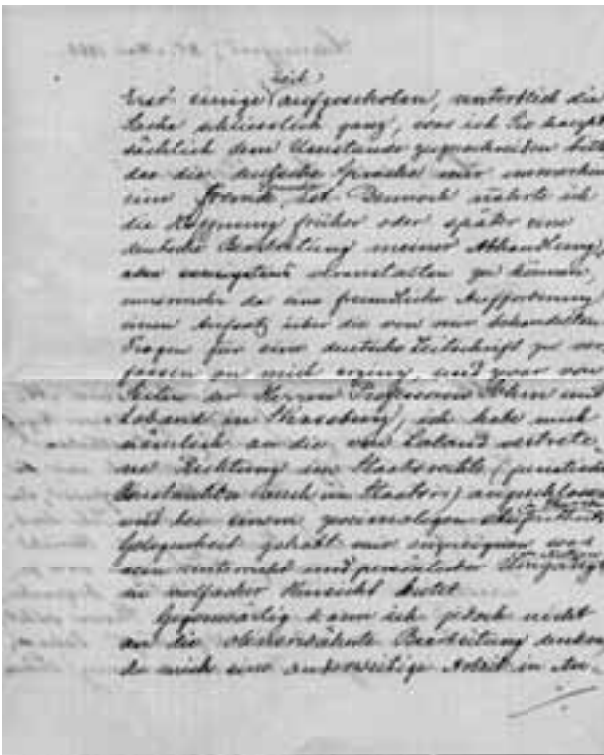 Zeit
Erst einige aufgeschoben, unterblieb die
Sache schliesslich ganz, was ich Sie haupt
sächlich dem Umstande zuzuschreiben bitte
das die deutsche Sprache mir immerhin
eine fremde ist. Dennoch nährte ich
die Hoffnung früher oder später eine
deutsche Bearbeitung meiner Abhandlung,
oder wenigstens veranstalten zu können,
da eine freundliche Aufforderung
einen Aufsatz über die von mir behandelten
Fragen für eine deutsche Zeitschrift zu ver
fassen an mich erging, und zwar von
Seiten der Herren Professoren und
Laband in Strassburg, ich habe mich
nämlich an die von Laband vertrete
ne Richtung im Staatsrechte (juristische
Construktion auch im Staatsr.) angeschlossen
und bei einem zweimaligen Aufenthalte
Gelegenheit gehabt mir anzueignen was
sein Unterricht und persönlicher Umgang
in vielfacher Hinsicht bietet.
Gegenwärtig kann ich jedoch nicht
an die obenerwähnte Bearbeitung denken,
da mich eine anderweitige Arbeit in An-